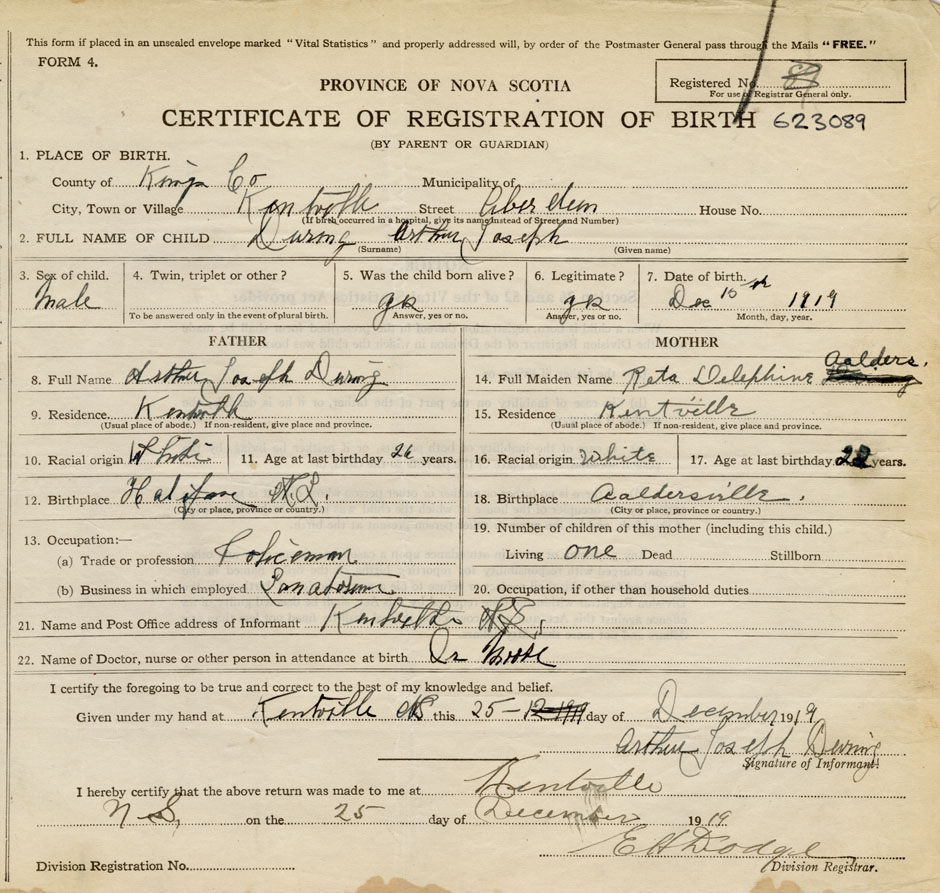 This form if placed in an unsealed envelope marked "Vital Statistics" and properly addressed will, by order of the Postmaster General pass through the Mails "FREE."
FORM 4.
Registered No.
For use of Registrar General only.
PROVINCE OF NOVA SCOTIA
CERTIFICATE OF REGISTRATION OF BIRTH 623089
(BY PARENT OR GUARDIAN)
1. PLACE OF BIRTH.
County of Kings Co Municipality of
City, Town or Village Kentville Street Aberdeen House No.
(If birth occurred in a hospital, give its name instead of Street and Number)
2. FULL NAME OF CHILD During Arthur Joseph
(Surname) (Given name)
3. Sex of child. 4. Twin, triplet or other? 5. Was the child born alive? 6. Legitimate? 7. Date of birth.
Male yes yes Dec 15th 1919
To be answered only in the event of plural birth. Answer, yes or no. Answer, yes or no. Month, day, year.
FATHER MOTHER
8. Full Name Arthur Joseph During 14. Full Maiden Name Reta Delephine Aalders.
9. Residence Kentville 15. Residence Kentville
(Usual place of abode.) If non-resident, give place and province. (Usual place of abode.) If non-resident, give place and province.
10. Racial origin White 11. Age at last birthday 26 years. 16. Racial origin White 17. Age at last birthday 22 years.
12. Birthplace Halifax N.S. 18. Birthplace Aaldersville.
(City or place, province or country.) (City or place, province or country.)
13. Occupation:— 19. Number of children of this mother (including this child.)
(a) Trade or profession Policeman Living one Dead Stillborn
(b) Business in which employed Sanatorium 20. Occupation, if other than household duties
21. Name and Post Office address of Informant Kentville N.S.
22. Name of Doctor, nurse or other person in attendance at birth Dr
I certify the foregoing to be true and correct to the best of my knowledge and belief.
Given under my hand at Kentville NS this 25- day of December 1919
Arthur Joseph During
Signature of Informant.
I hereby certify that the above return was made to me at Kentville
N S, on the 25 day of December 1919
E H Dodge
Division Registration No. Division Registrar.